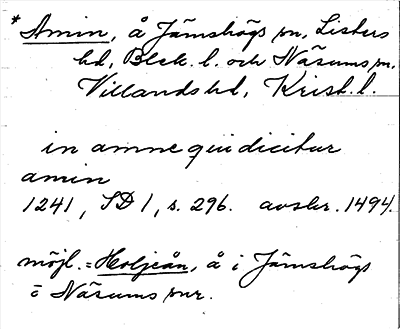 * Amin, å Jämshögs sn, Listers
hd, Blek. l. och Näsums sn,
Villands hd, Krist. l.
in amne qui dicitur
amin
1241, SD 1, s. 296. avskr. 1494.
möjl. = Holjeån, å i Jämshögs
o Näsums snr.